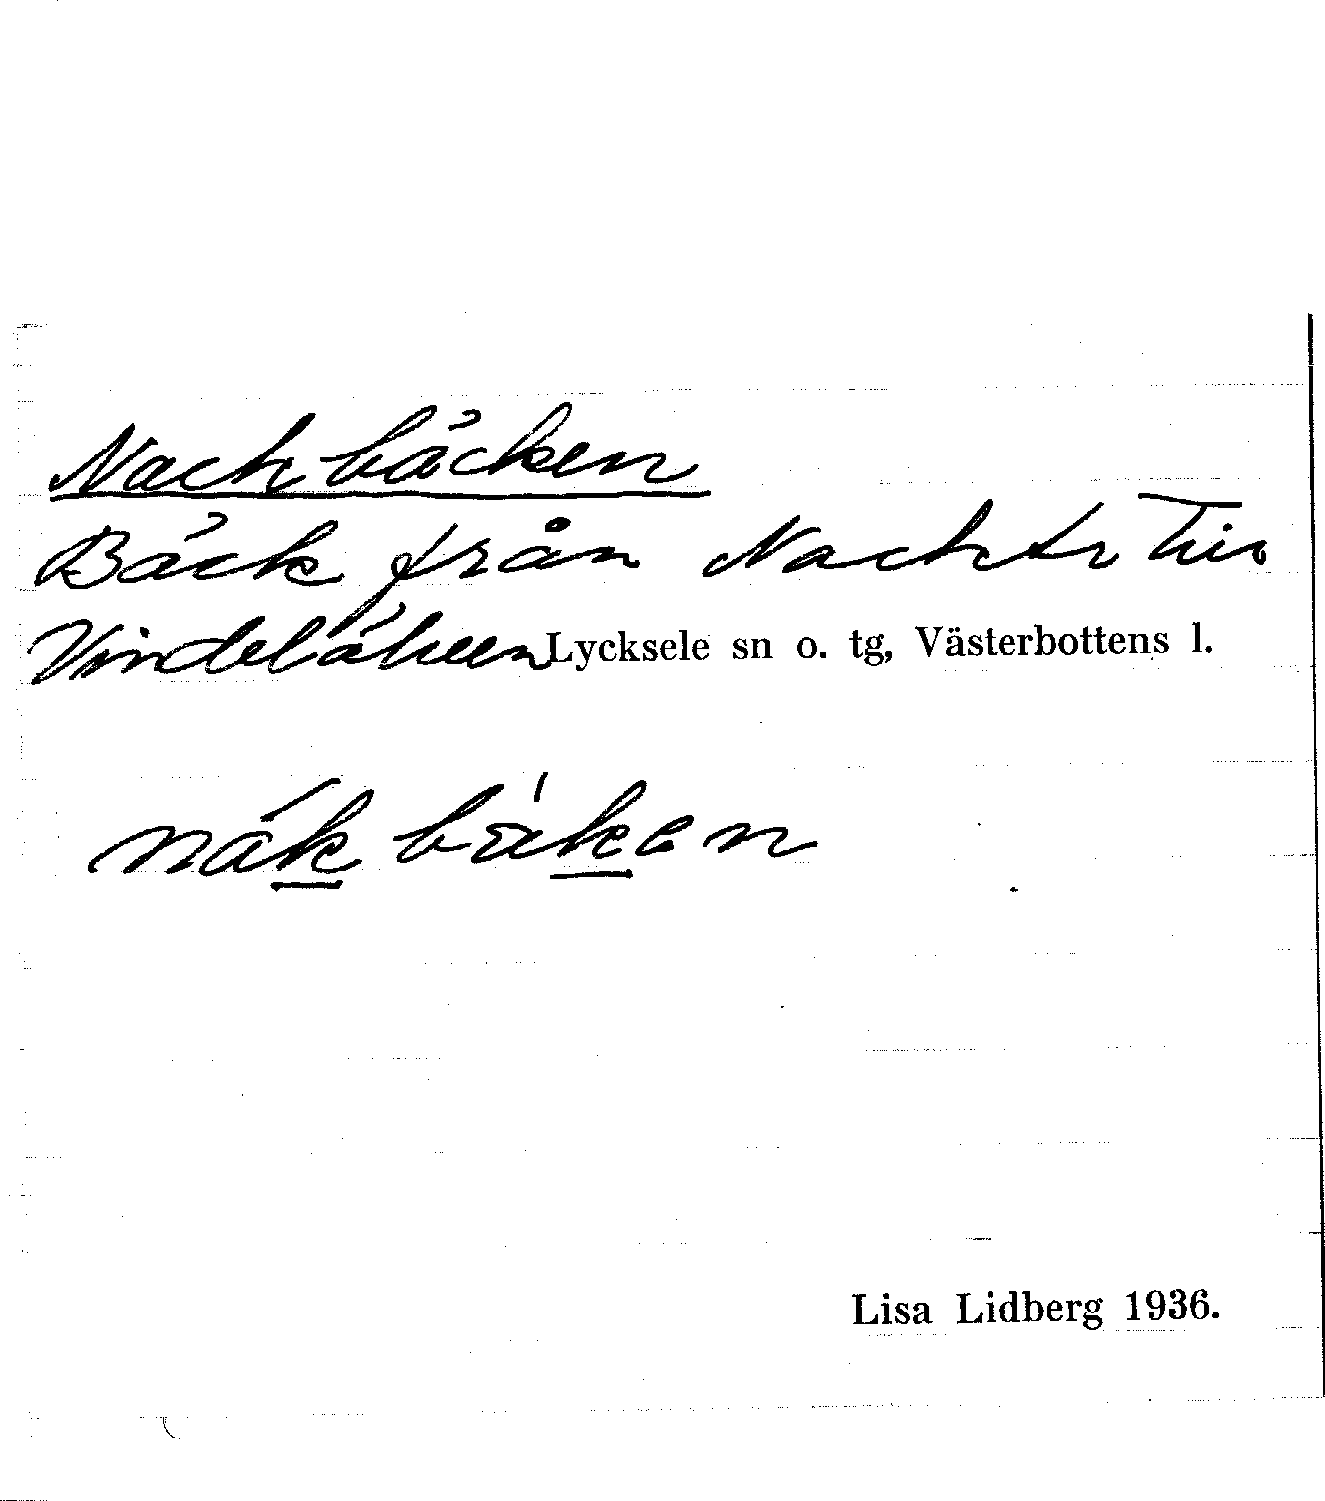 Nackbäcken
Bäck från Nacktr till
Vindelälven Lycksele sn o. tg, Västerbottens l.
nák bä̀ken
Lisa Lidberg 1936.